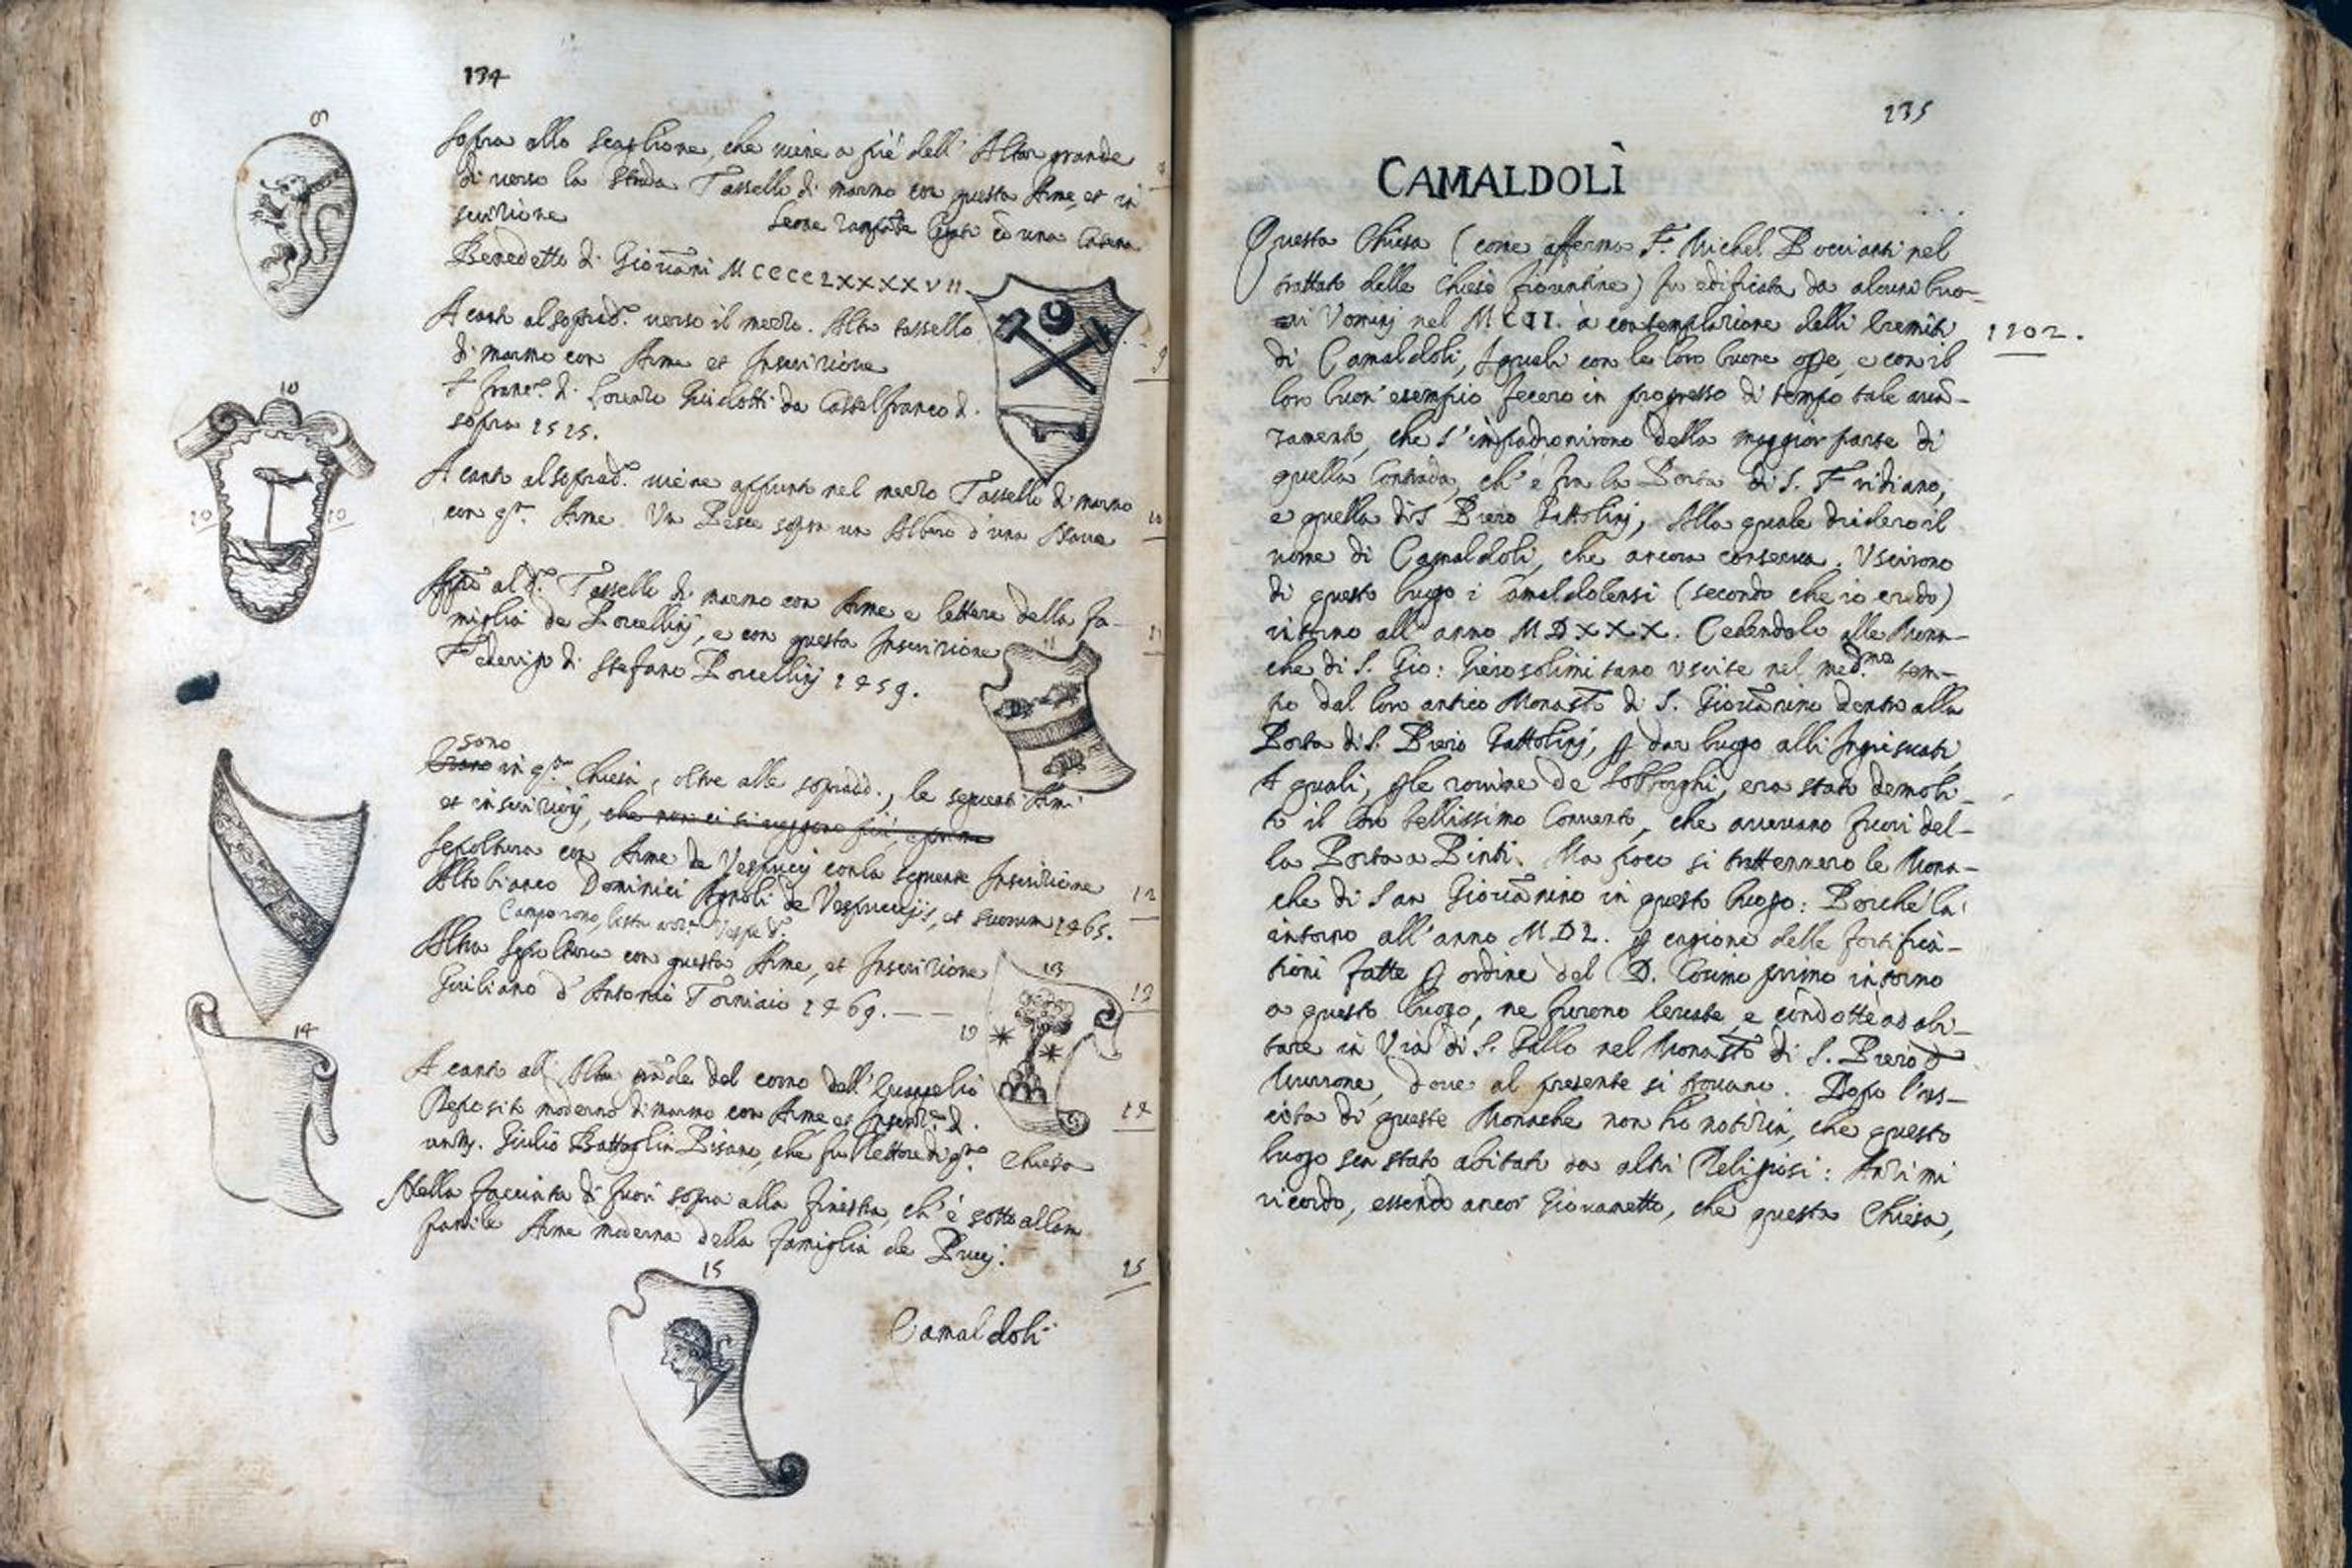 134
Sopra allo scaglione, che viene a piè dell' Altar grande
di verso la strada Tassello di marmo con questa Arme, et in
scrizione
Leone rampāte legato cō una Catena
Benedetto di Giovāni MCCCCLXXXXVII.
A canto al soprad.º verso il mezzo. Altro tassello
di marmo con Arme et Inscrizione
Franc.º di Lorenzo Guidotti da Castelfranco d.
sopra 1525.
A canto al soprad.º viene appunto nel mezzo Tassello di marmo
con q.ta Arme. Un Pesce sopra un Albero d'una Nave
al d.º Tassello di marmo con Arme e lettere della fa-
miglia de Porcellinj, e con questa Inscrizione
Federigo di Stefano Porcellinj 1459.
sono
Erano in q.ta Chiesa, oltre alle sopradd., le seguenti Armi
et inscrizionj, che non ci si veggono più, e prima
Sepoltura con Arme de Vespuccj con la seguente Inscrizione
Altobianco Dominici Agnoli de Vespuccijs, et suorum 1465.
Campo rosso, lista azz.ª Vespe d.º
Altra Sepoltura con questa Arme, et Inscrizione
Giuliano d'Antonio Torniaio 1469.
A canto all' Altar grāde del corno dell' Evangelio
Deposito moderno di marmo con Arme et Inscriz.ne d.
Giulio Battaglin Pisano, che fu Rettore di q.ta Chiesa
Nella facciata di fuori sopra alla finestra, ch'è sotto allom
Arme moderna della famiglia de Puccj.
Camaldoli
8
9
10
11
12
13
14
15
10
10
10
11
13
19
14
15
235
CAMALDOLÌ
Questa Chiesa (come afferma F. Michel Poccianti nel
trattato delle Chiese fiorentine) fu edificata da alcuni buo-
ni Vominj nel MCII. à contemplazione delli Eremiti
di Camaldoli, I quali con le loro buone ope, e con il
loro buon' esempio fecero in progresso di tempo tale avā-
zamento, che s'impadronirono della maggior parte di
quella Contrada, ch'è fra la Porta di S. Fridiano,
e quella di S Piero Gattolinj, Alla quale diedero il
nome di Camaldoli, che ancora conserva. Vscirono
di questo luogo i Camaldolensi (secondo che io credo)
intorno all' anno MDXXX. Cedendolo alle Mona-
che di S. Gio: Gierosolimitano vscite nel med.mo tem-
po dal loro antico Monast.o di S. Giovānnino dentro alla
Porta di S. Piero Gattolinj, p dar luogo alli Ingiesuati,
A quali, p le rovine de Sobborghi, era stato demoli-
to il loro bellissimo Convento, che avevano fuori del-
la Porta a Pinti. Ma poco si trattennero le Mona-
che di San Giovānnino in questo luogo: Perche là
intorno all'anno MDL. p cagione delle fortifica-
tioni fatte p ordine del D. Cosimo primo intorno
a questo luogo, ne furono levate, e cōndotte ad abi-
tare in Via di S. Gallo nel Monast.o di S. Piero d
Murrone, dove al presente si trovano. Dopo l'us-
cita di queste Monache non ho notizia, che questo
luogo sia stato abitato da altri Religiosi: Anzi mi
ricordo, essendo ancor Giovanetto, che questa Chiesa,
1102.